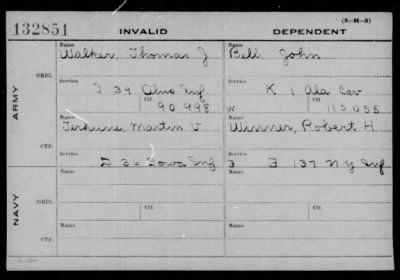 132851 INVALID DEPENDENT (3-H-3)
ARMY
ORIG.
Name Walker, Thomas J
Name Bell, John
Service I 39 Ohio Inf
Service K 1 Ala Cav
Ctf. 90 998
W Ctf. 115 055
CTF.
Name Terhune, Martin V
Name Winner, Robert H
Service I 36 Iowa Inf
Service F 137 N Y Inf
NAVY
ORIG.
Name
Name
Service Ctf.
Service Ctf.
CTF.
Name
Name
Service
Service